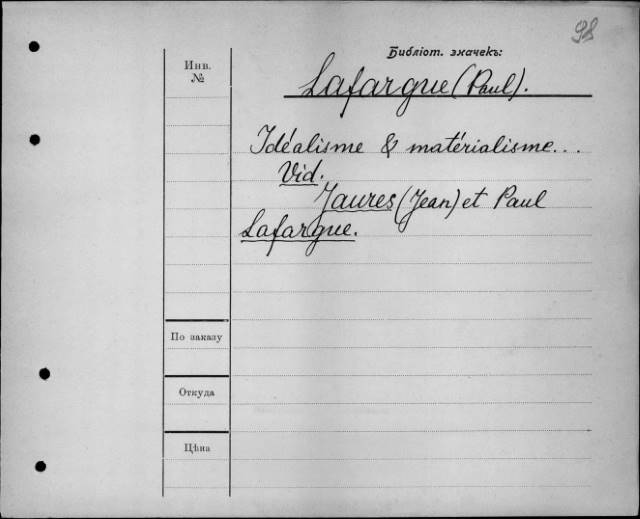 98
Библіот. значекъ:
Инв.
№
Lafargue (Paul).
Idéalisme & matérialisme...
Vid.
Jaures (Jean) et Paul
Lafargue.
По заказу
Откуда
Цѣна